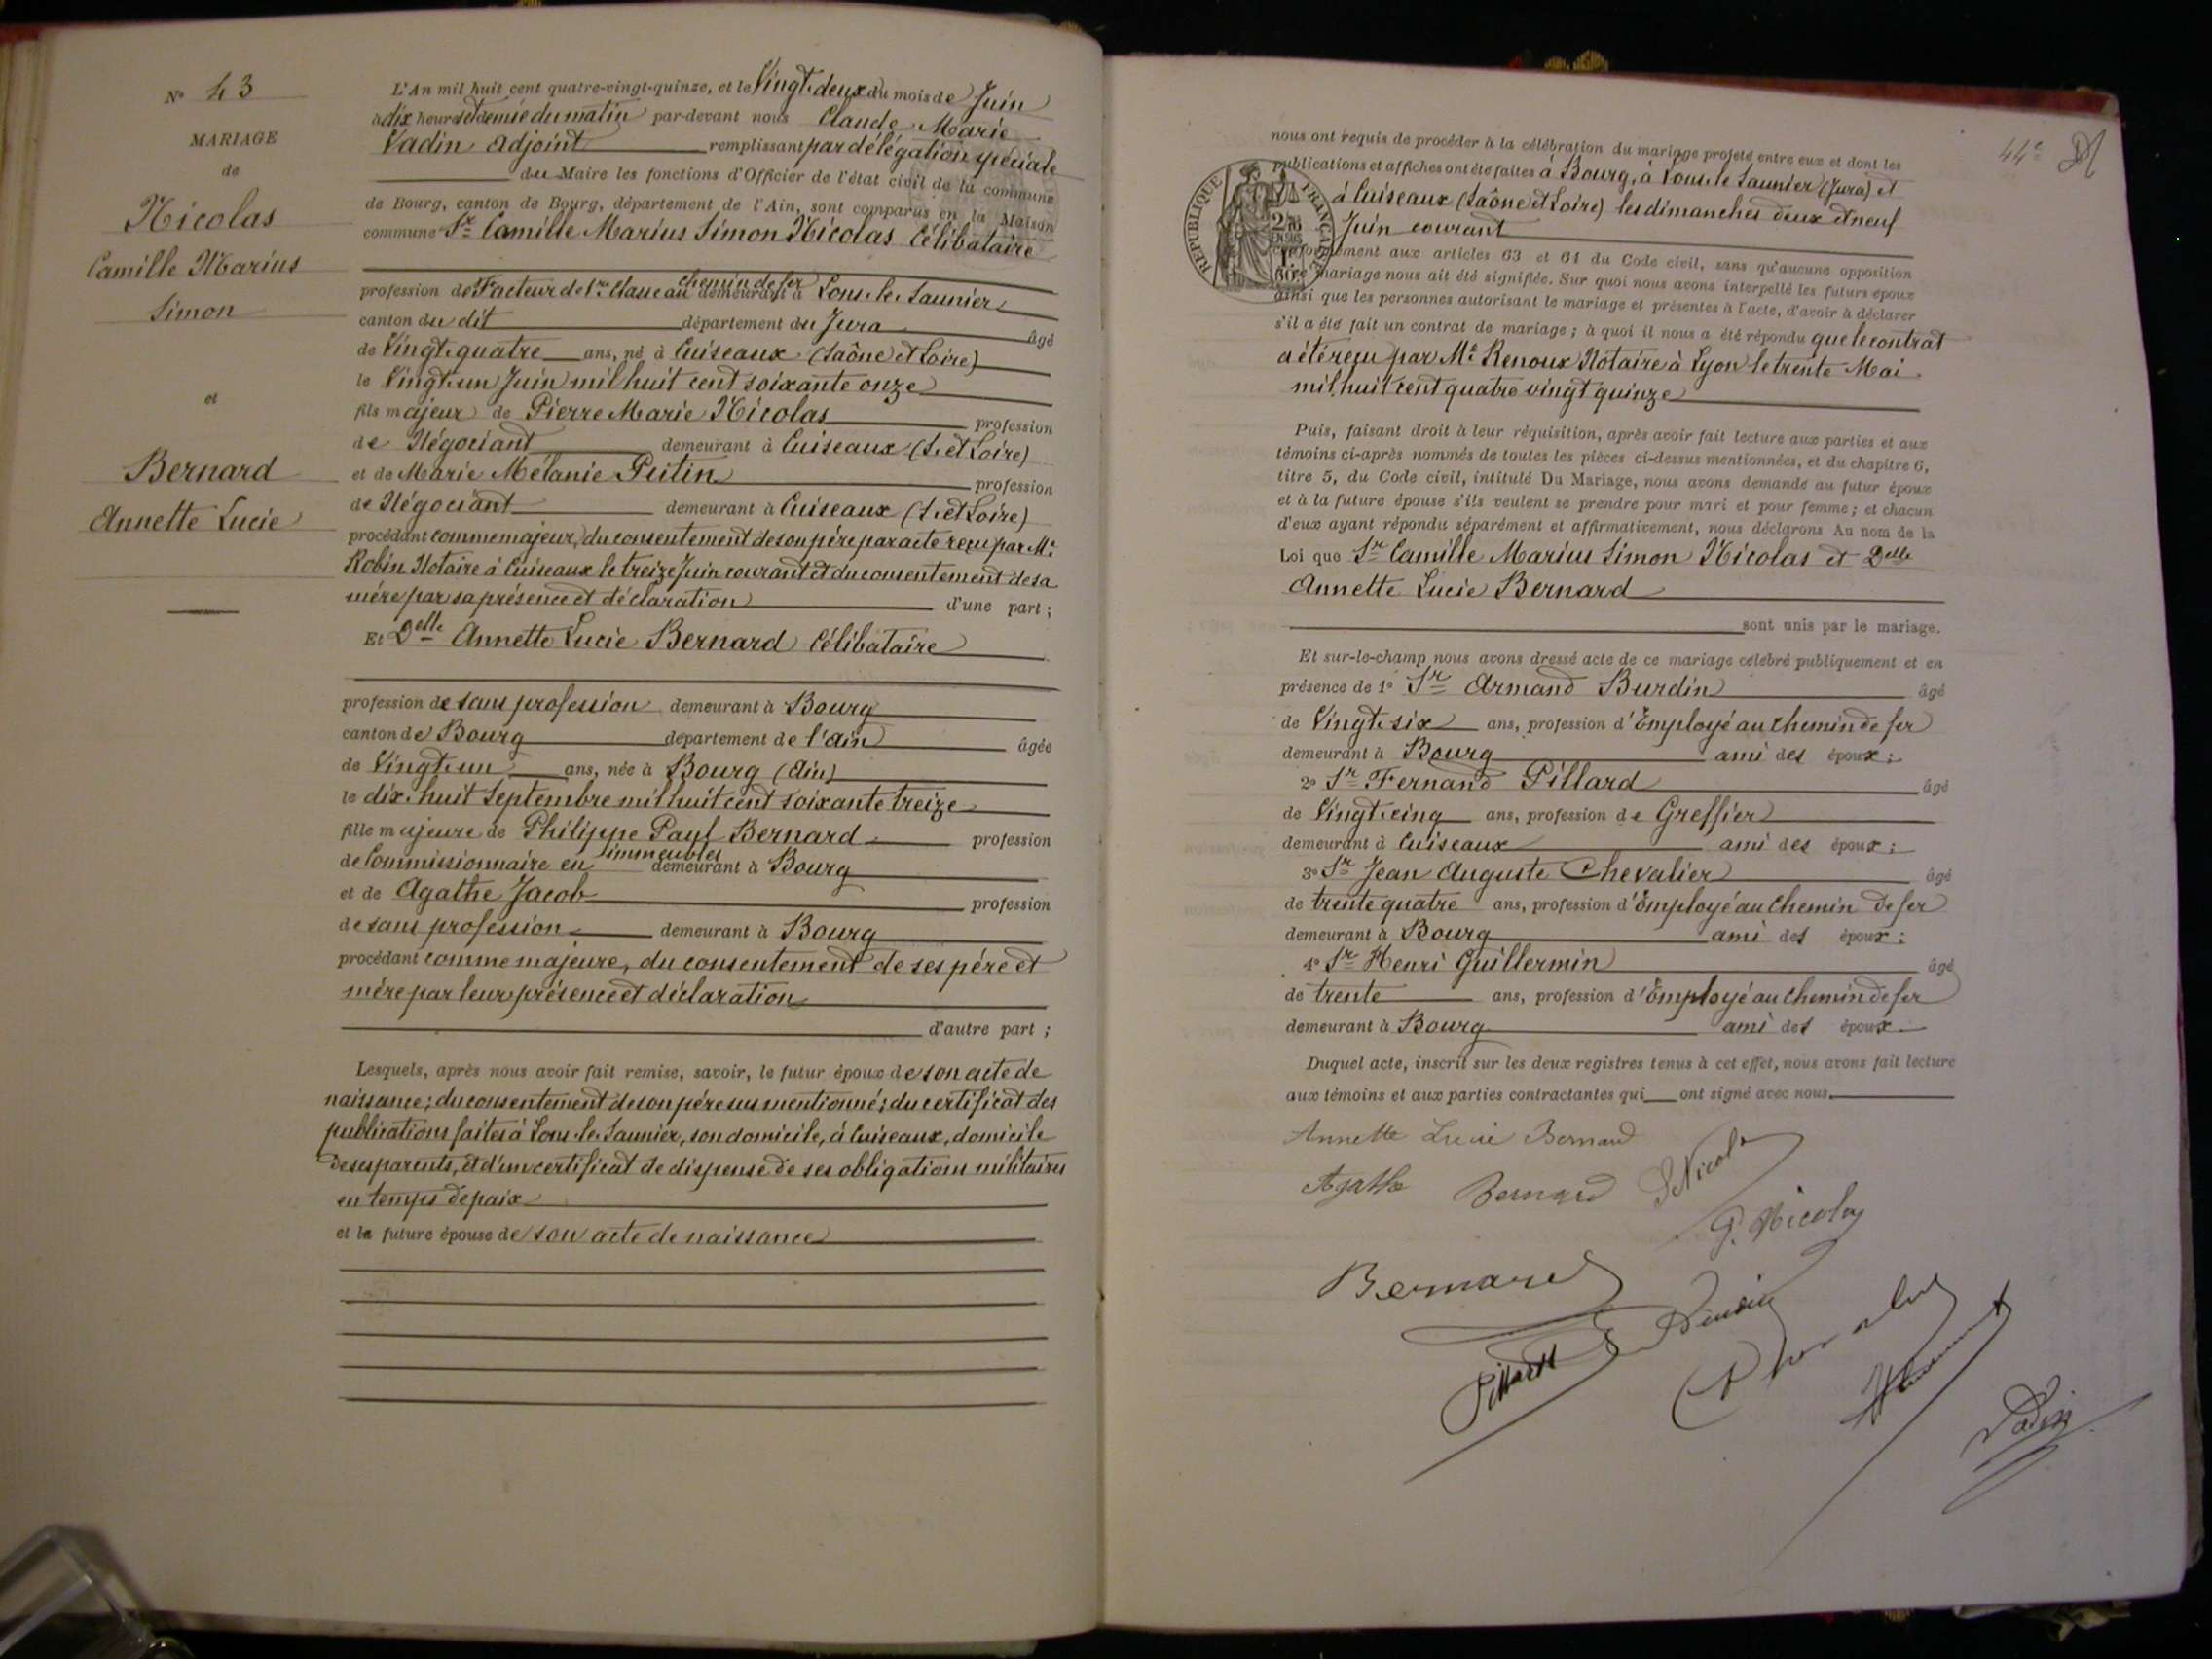 N° 43
MARIAGE
de
Nicolas
Camille Marius
Simon
et
Bernard
Annette Lucie
L'An mil huit cent quatre-vingt-quinze, et le Vingt-deux du mois de Juin
à dix heures et demie du matin par-devant nous Claude Marie
Vadin adjoint remplissant par délégation spéciale
du Maire les fonctions d'Officier de l'état civil de la commune
de Bourg, canton de Bourg, département de l'Ain, sont comparus en la Maison
commune Sr Camille Marius Simon Nicolas Célibataire
profession de Facteur de 1re classe au chemin de fer demeurant à Lons-le-Saunier
canton du dit département du Jura âgé
de Vingt-quatre ans, né à Cuiseaux (Saône et Loire)
le Vingt-un Juin mil huit cent soixante onze
fils majeur de Pierre Marie Nicolas profession
de Négociant demeurant à Cuiseaux (S. et Loire)
et de Marie Mélanie Putin profession
de Négociant demeurant à Cuiseaux (S. et Loire)
procédant comme majeur, du consentement de son père par acte reçu par Me
Robin Notaire à Cuiseaux le treize Juin courant et du consentement de sa
mère par sa présence et déclaration d'une part ;
Et Delle Annette Lucie Bernard Célibataire
profession de sans profession demeurant à Bourg
canton de Bourg département de l'ain âgée
de Vingt-un ans, née à Bourg (Ain)
le dix-huit Septembre mil huit cent soixante treize
fille majeure de Philippe Paul Bernard profession
de Commissionnaire en immeubles demeurant à Bourg
et de Agathe Jacob profession
de sans profession demeurant à Bourg
procédant comme majeure, du consentement de ses père et
mère par leur présence et déclaration
d'autre part ;
Lesquels, après nous avoir fait remise, savoir, le futur époux de son acte de
naissance ; du consentement de son père sus mentionné ; du certificat des
publications faites à Lons-le-Saunier, son domicile, à Cuiseaux, domicile
de ses parents, et d'un certificat de dispense de ses obligations militaires
en temps de paix
et la future épouse de son acte de naissance
44e
nous ont requis de procéder à la célébration du mariage projeté entre eux et dont les
publications et affiches ont été faites à Bourg, à Lons-le-Saunier (Jura) et
à Cuiseaux (Saône et Loire) les dimanches deux et neuf
Juin courant
RÉPUBLIQUE FRANÇAISE
conformément aux articles 63 et 64 du Code civil, sans qu'aucune opposition
mariage nous ait été signifiée. Sur quoi nous avons interpellé les futurs époux
ainsi que les personnes autorisant le mariage et présentes à l'acte, d'avoir à déclarer
s'il a été fait un contrat de mariage ; à quoi il nous a été répondu que le contrat
a été reçu par Me Renoux Notaire à Lyon le trente Mai
mil huit cent quatre vingt quinze
Puis, faisant droit à leur réquisition, après avoir fait lecture aux parties et aux
témoins ci-après nommés de toutes les pièces ci-dessus mentionnées, et du chapitre 6,
titre 5, du Code civil, intitulé Du Mariage, nous avons demandé au futur époux
et à la future épouse s'ils veulent se prendre pour mari et pour femme ; et chacun
d'eux ayant répondu séparément et affirmativement, nous déclarons Au nom de la
Loi que Sr Camille Marius Simon Nicolas et Delle
Annette Lucie Bernard
sont unis par le mariage.
Et sur-le-champ nous avons dressé acte de ce mariage célébré publiquement et en
présence de 1° Sr Armand Burdin âgé
de Vingt-six ans, profession d'Employé au chemin de fer
demeurant à Bourg ami des époux ;
2° Sr Fernand Pillard âgé
de Vingt-cinq ans, profession de Greffier
demeurant à Cuiseaux ami des époux ;
3° Sr Jean Auguste Chevalier âgé
de trente quatre ans, profession d'Employé au Chemin de fer
demeurant à Bourg ami des époux ;
4° Sr Henri Guillermin âgé
de trente ans, profession d'Employé au chemin de fer
demeurant à Bourg ami des époux
Duquel acte, inscrit sur les deux registres tenus à cet effet, nous avons fait lecture
aux témoins et aux parties contractantes qui ont signé avec nous.
Annette Lucie Bernard
Agathe Bernard Nicolas
P. Nicolas
Bernard
Burdin
Pillard
Chevalier
Vadin